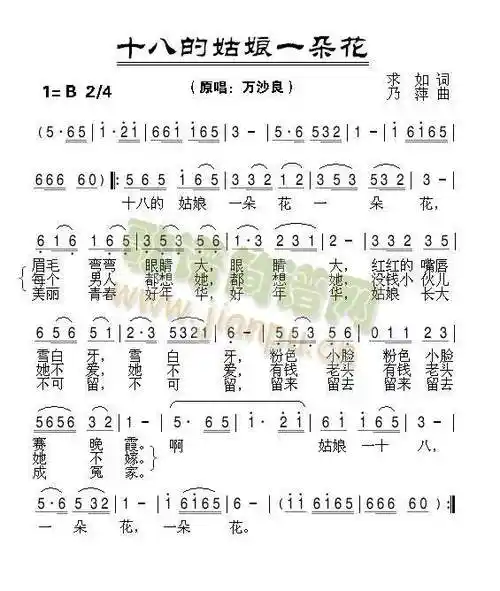 十八的姑娘一朵花
1=B 2/4
（原唱：万沙良）
求如词
乃萍曲
(5·65|1·21|661 165|3 -|5·65 532|1 6165|
666 60)‖:565 165|332 12|332 353|532 12|3 -|
十八的 姑娘 一朵 花 一 朵 花，
616 165|353 56|1·3 231|2 -|332 355|
眉毛 弯弯 眼睛 大，眼 睛 大，红红的 嘴唇
每个 男人 都想 她，都 想 她，没钱小 伙儿
美丽 青春 好年 华，好 年 华，姑娘 长大
656 51|2·3 5321|6· -|553 56|116 165|
雪白 牙，雪 白 牙，粉色 小脸 粉色 小脸
她不 爱，她 不 爱，有钱 老头 有钱 老头
不可 留，不 可 留，留来 留去 留来 留去
5656 32|1 -|5· 65|1·2 21|61 165|3 -|
赛 晚 霞。啊 姑娘 一十 八，
她 不 嫁。
成 冤 家。
5·6 532|1 -|1 6165|1 -|(11 6165|666 60):‖
一 朵 花，一朵 花。